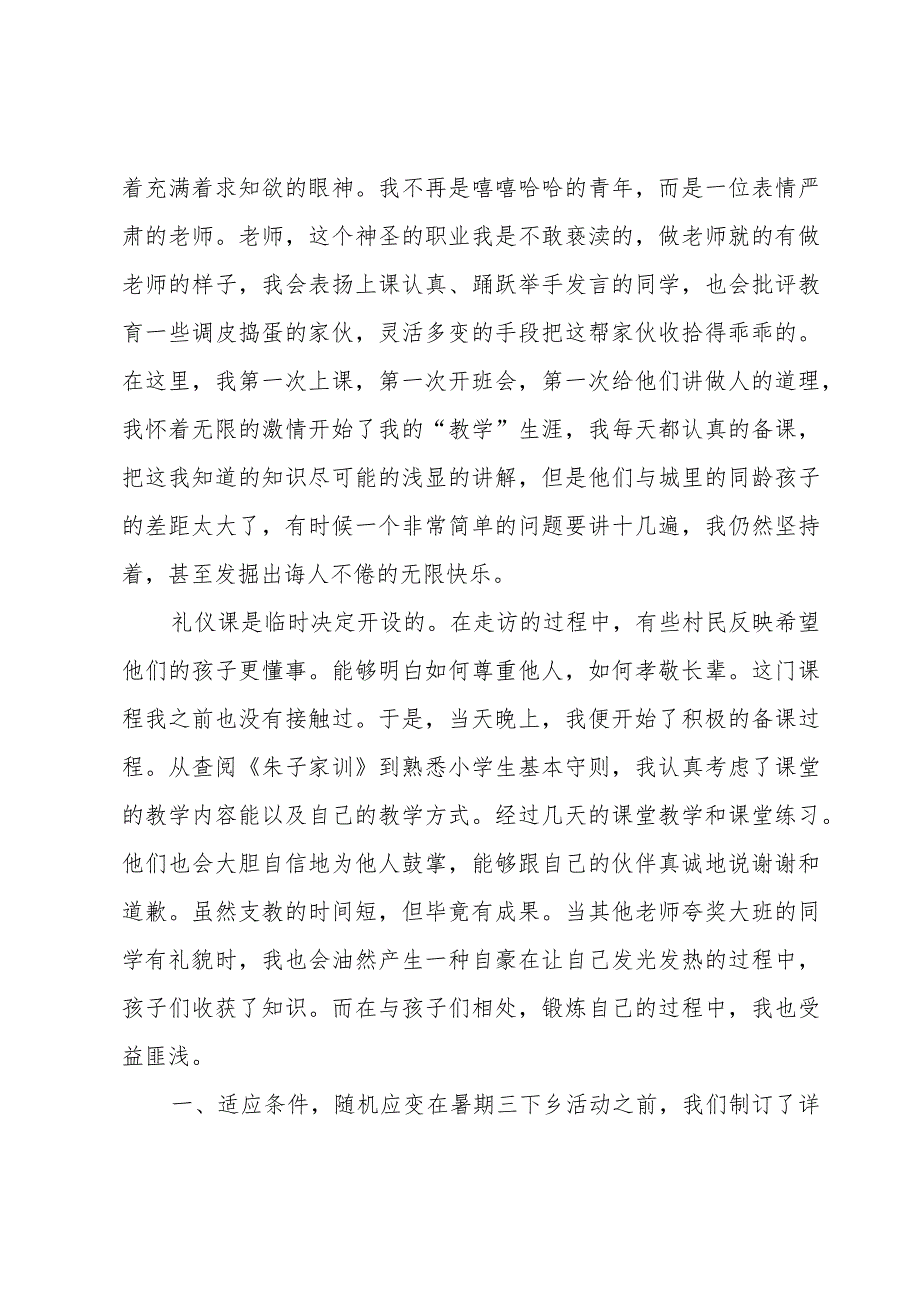 着充满着求知欲的眼神。我不再是嘻嘻哈哈的青年，而是一位表情严
肃的老师。老师，这个神圣的职业我是不敢亵渎的，做老师就的有做
老师的样子，我会表扬上课认真、踊跃举手发言的同学，也会批评教
育一些调皮捣蛋的家伙，灵活多变的手段把这帮家伙收拾得乖乖的。
在这里，我第一次上课，第一次开班会，第一次给他们讲做人的道理，
我怀着无限的激情开始了我的“教学”生涯，我每天都认真的备课，
把这我知道的知识尽可能的浅显的讲解，但是他们与城里的同龄孩子
的差距太大了，有时候一个非常简单的问题要讲十几遍，我仍然坚持
着，甚至发掘出诲人不倦的无限快乐。
礼仪课是临时决定开设的。在走访的过程中，有些村民反映希望
他们的孩子更懂事。能够明白如何尊重他人，如何孝敬长辈。这门课
程我之前也没有接触过。于是，当天晚上，我便开始了积极的备课过
程。从查阅《朱子家训》到熟悉小学生基本守则，我认真考虑了课堂
的教学内容能以及自己的教学方式。经过几天的课堂教学和课堂练习。
他们也会大胆自信地为他人鼓掌，能够跟自己的伙伴真诚地说谢谢和
道歉。虽然支教的时间短，但毕竟有成果。当其他老师夸奖大班的同
学有礼貌时，我也会油然产生一种自豪在让自己发光发热的过程中，
孩子们收获了知识。而在与孩子们相处，锻炼自己的过程中，我也受
益匪浅。
一、适应条件，随机应变在暑期三下乡活动之前，我们制订了详